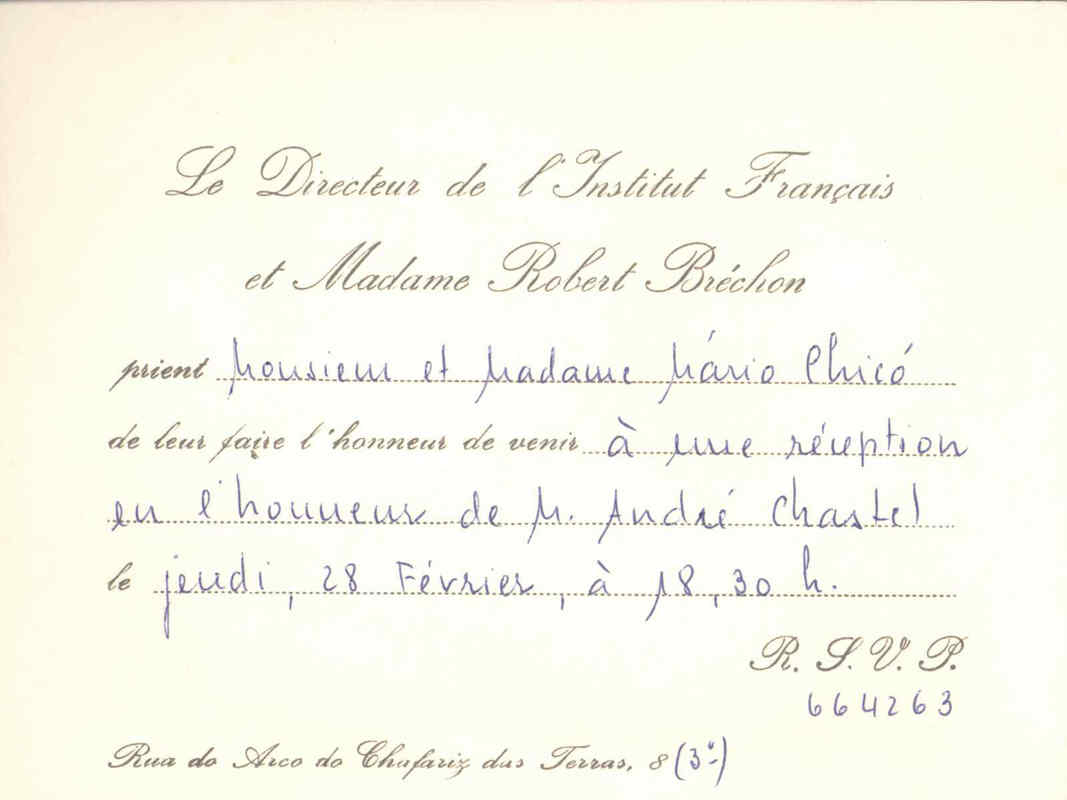 Le Directeur de l'Institut Français
et Madame Robert Bréchon
prient Monsieur et Madame Mário Chicó
de leur faire l'honneur de venir à une réception
en l'honneur de M. André Chastel
le jeudi, 28 Février, à 18,30 h.
R. S. V. P.
664263
Rua do Arco do Chafariz das Terras, 8 (3º)